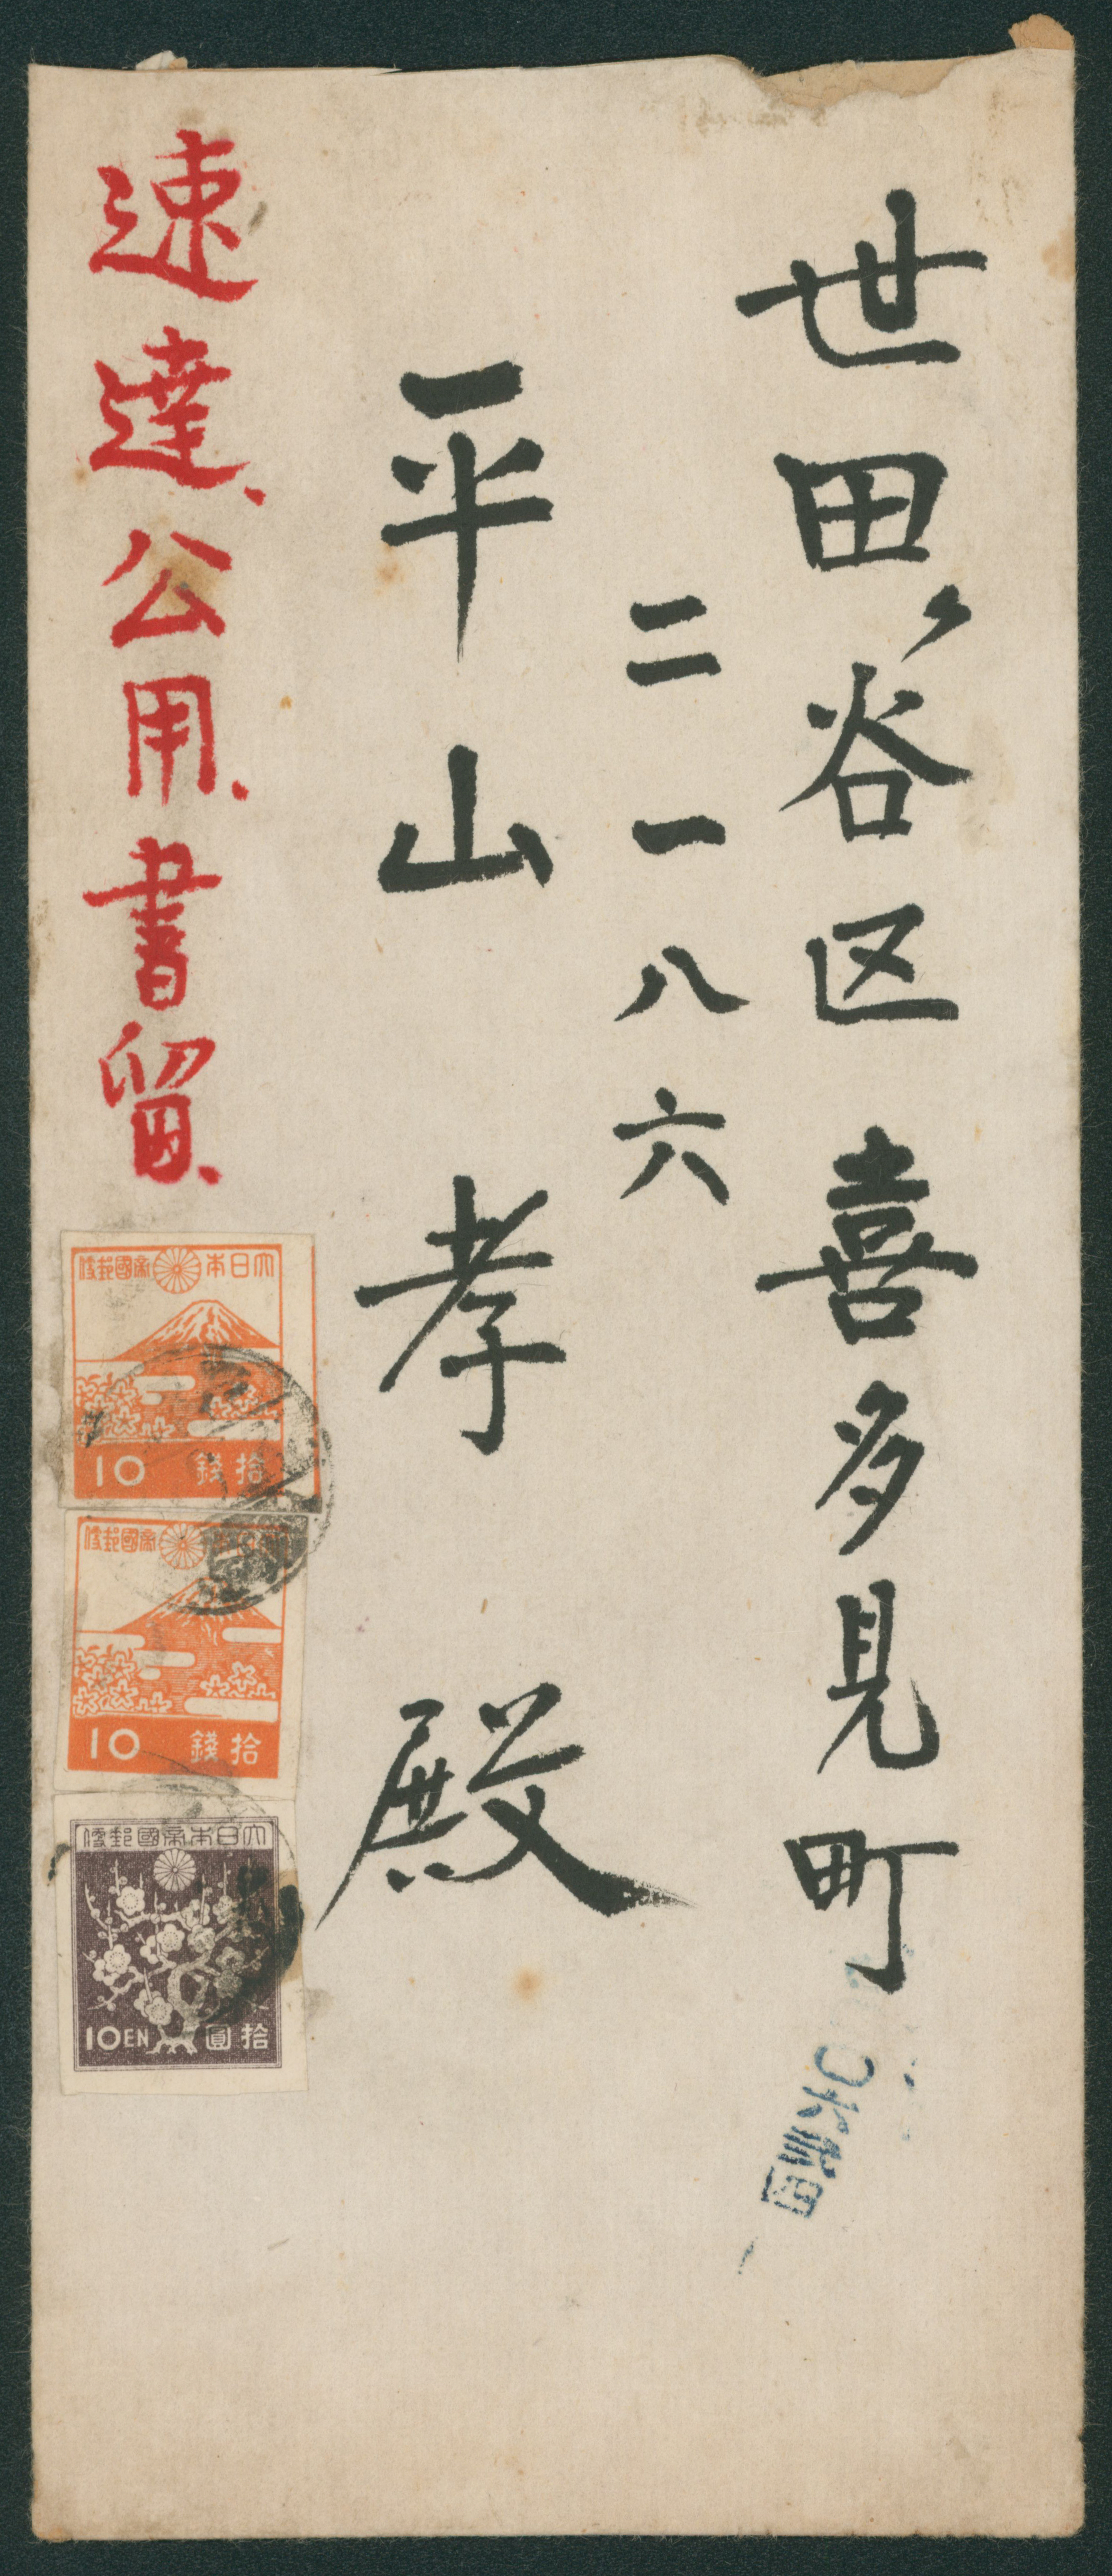 世田ヶ谷区喜多見町
二一八六
平山孝殿
速達、公用、書留、
大日本帝國郵便
10 拾錢
大日本帝國郵便
10 拾錢
大日本帝國郵便
10EN 拾圓